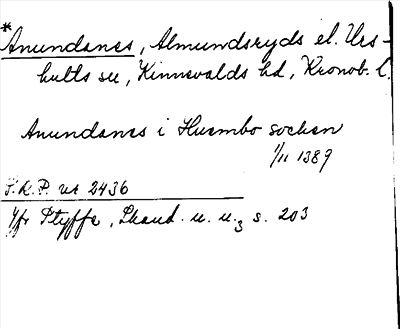 *Anundanes, Almundsryds el. Urs-
hults sn, Kinnevalds hd, Kronob. l.
Anundanes i Husmbo socken
1/11 1389
S.R.P. nr 2436
Jfr Styffe, Skand. u. u.3 s. 203